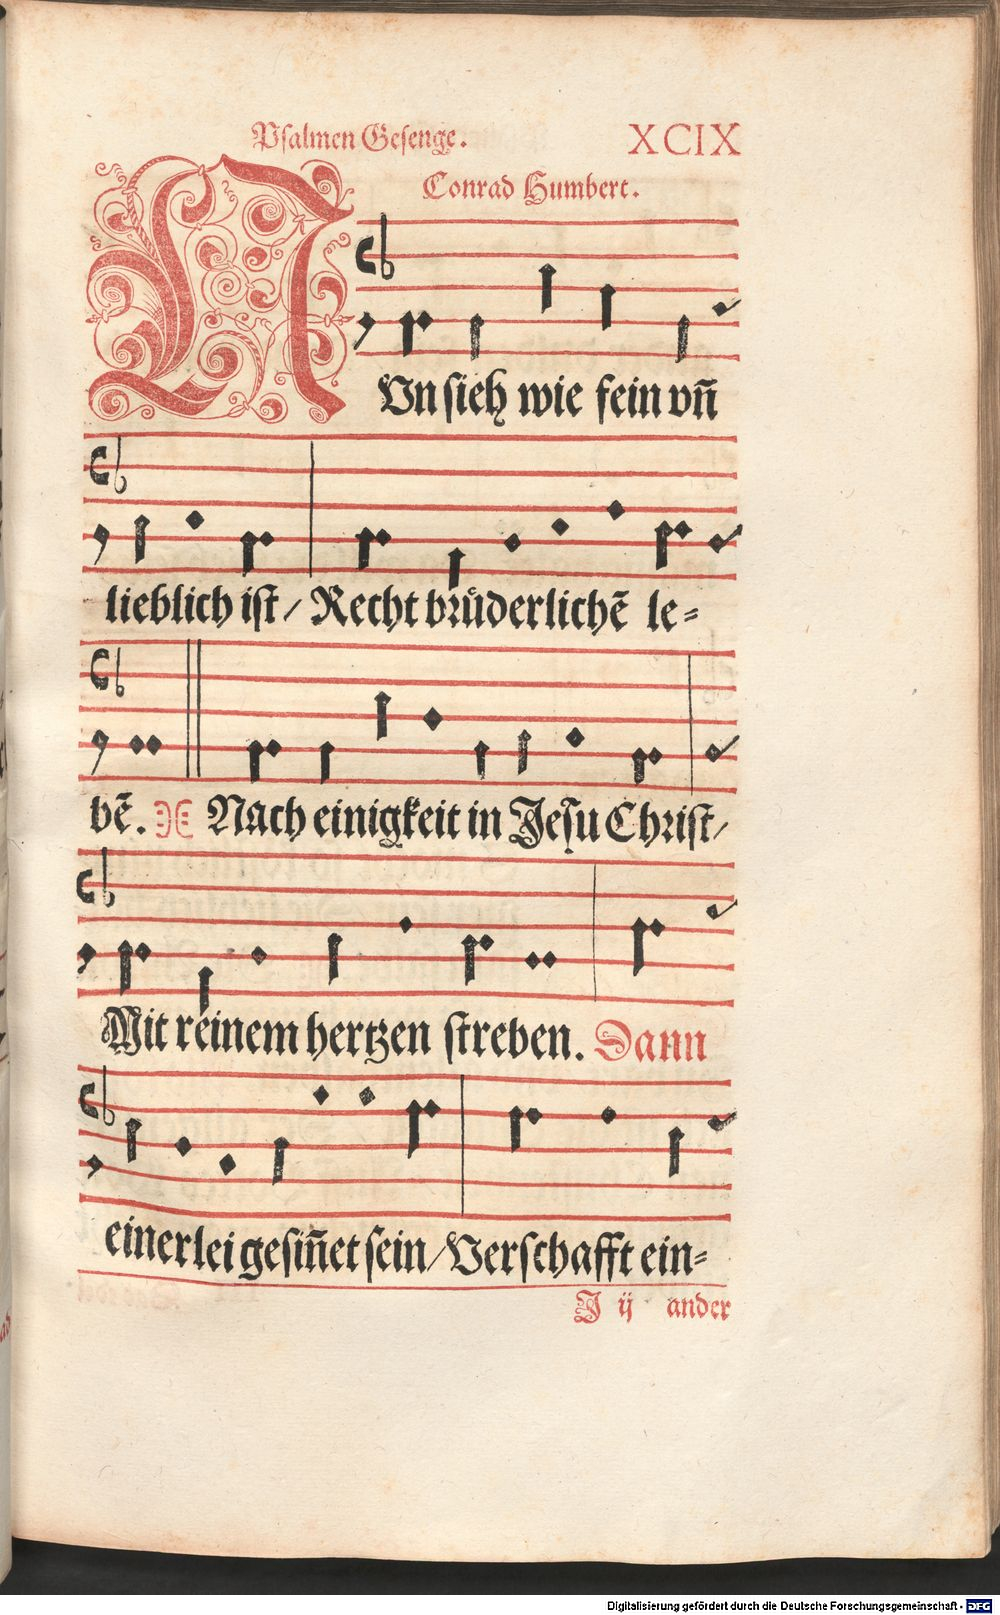 Psalmen Gesenge. XCIX
Conrad Humbert.
NVn sieh wie fein vn̄
lieblich ist / Recht brůderlichē le=
bē. Nach einigkeit in Jesu Christ /
Mit reinem hertzen streben. Dann
einerlei gesiñet sein / Verschafft ein=
J ij ander
Digitalisierung gefördert durch die Deutsche Forschungsgemeinschaft - DFG